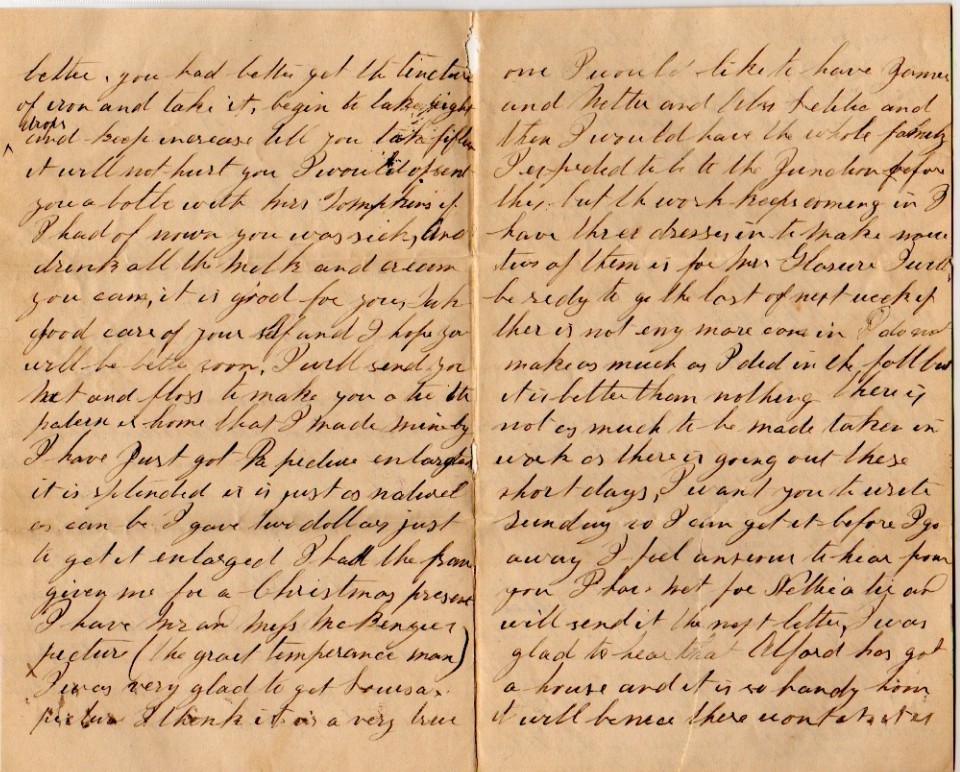 better. you had better get the tincture
of iron and take it, begin to take eight
drops
and keep increase till you take fifteen
it will not hurt you I would of sent
you a bottle with Mrs Tompkins if
I had of nown you was sick, And
drink all the milk and cream
you can, it is good for you, Tak
good care of your self and I hope you
will be better soon, I will send you
net and floss to make you a tie the
patern is home that I made mine by
I have Just got Pa picture enlarged
it is splended it is just as natural
as can be I gave two dollars just
to get it enlarged I had the fram
given me for a Christmas present
I have Mr and
picture (the great temperance man)
I was very glad to get Louisa
picture I think it is a very true
one I would like to have James
and Nettie and Miss and
then I would have the whole family
I expected to be to the Junction before
this, but the work keeps coming in I
have three dresses in to make now
two of them is for Mrs Glasure I will
be redy to go the last of next week if
ther is not eny more come in I do not
make as much as I did in the fall but
it is better than nothing there is
not as much to be made taken in
work as there is going out these
short days, I want you to write
Sunday so I can get it before I go
away I feel anxious to hear from
you I have net for Nellie a tie and
will send it the next letter, I was
glad to hear that Alford has got
a house and it is so handy home
it will be nice there wont